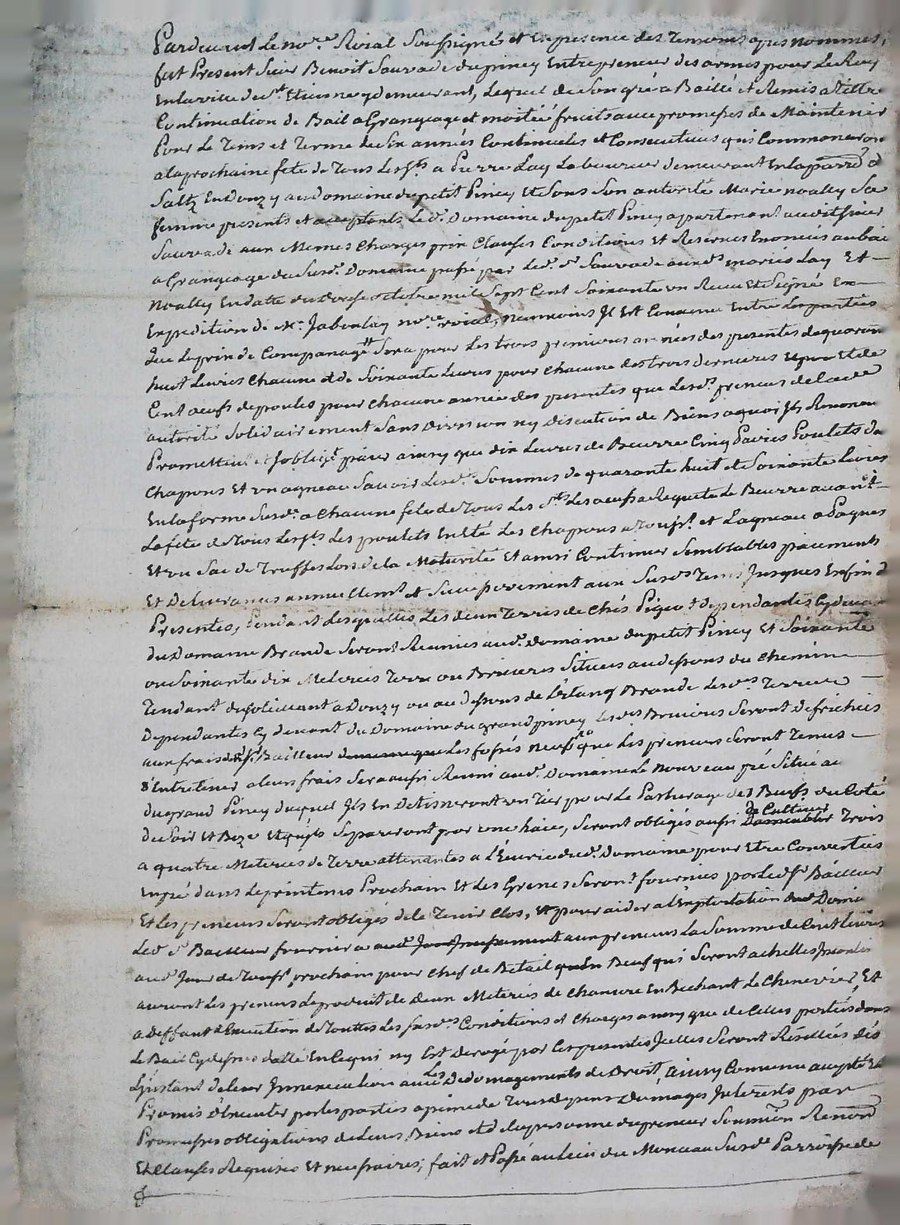 Pardevant Le no.re Roial Soussigné et En presence des Temoins apres nommes,
fut Present Sieur Benoit Sauvade du piney Entrepreneur des armes pour Le Roy
En la ville de S.t Etienne y demeurant, Lequel de Son gré a Baillé et Remis a Titre
Continuation de Bail a Grangeage et moitié fruits aux promesses de Maintenir
Pour Le Tems et Terme de Six années Continuelles et Consecutives qui Commenceron
a la prochaine fete de Tous Les S.ts a Pierre Lay Laboureur demeurant En la parro.
Saltz En Donzy au domaine du petit Piney Et Sous Son autorité Marie noally Sa
femme presents et acceptants Le d. Domaine du petit Piney appartenant audit Sieur
Sauvade aux Memes Charges prix Clauses Conditions Et Reserves Enoncés au bai
a Grangeage du Susd. Domaine passé par Led. S. Sauvade aux d. mariés Lay Et
Noally En datte du octobre mil Sept Cent Soixante un Recu Et Signé En
Expedition de M.e Jabouley no.re roial, neanmoins Il Est Convenu Entre Les parties
que Le prix de Compange Sera pour Les trois premieres années des presentes de quaran
huit Livres Chacune et de Soixante Livres pour chacune des trois dernieres Et de
Cent oeufs de poules pour Chacune année des presentes que Lesd. preneurs de
autorité Solidairement Sans Division ny Discution de Biens a quoi Ils Renoncen
Promettent et S'oblig.t paier ainsy que dix Livres de Beurre Cinq Paires Poulets
Chapons Et un agneau Savoir Lesd. Sommes de quarante huit de Soixante Livres
En la forme Susd. a Chacune fete de Tous Les S.ts Les oeufs a Requete Le Beurre avant
La fete de Tous Les S.ts Les poulets En Eté Les Chapons a Touss.t et L'agneau a Paques
Et un Sac de Truffes Lors de La Maturité Et ainsi Continuer Semblables paiements
Et Delivrances annuellem.t et Successivement aux Susd. Tems Jusques En fin d
Presentes, Pendant Lesquelles Les deux Terres de Chés Pigeot dependantes Cydevan
du Domaine Brande Seront Reunies aud. Domaine du petit Piney Et Soixante
ou Soixante dix Meterées Terre ou Bruieres Situées au dessous du Chemin
Tendant de a Donzy ou au dessous de L'Etang Brande Lesd. Terres
Dependantes Cy devant du Domaine du grand piney Les d. Bruieres Seront defrichées
aux frais du S.r Bailleur Les fossés neufs que Les preneurs Seront Tenus
d'Entretenir a leurs frais Sera aussi Reuni aud. Domaine Le nouveau pré Situé au
du grand Piney duquel Ils En Detineront un Tier pour Le Patturage des Bœufs du Coté
du Soir et Bize Lequel Ils Separeront par une haie, Seront obligés aussi de Cultiver Trois
a quatre Meterées de Terre attenantes a L'Ecurie dud. Domaine pour Etre Converties
En pré dans Le printems Prochain Et Les Grenes Seron.t fournies par Led. S.r Bailleur
Et Les preneurs Seront obligés de Le Tenir Clos, Et pour aider a L'Exploitation dud Dom.
Led. S. Bailleur fournira aux preneurs La Somme de Cent Livres
aud. Jour de Touss.t prochain pour Chef de Betail Bœufs qui Seront achettés
auront Les preneurs Le produit de deux Meterées de Chanvre En Bechant Le Chenevier, Et
a Deffaut d'Execution de Touttes Les Susd.es Conditions et Charges ainsy que de Celles portées dans
Le Bail Cy dessus datté En Ce qui ny Est Derogé par Ces presentes Icelles Seront Resillées Dés
L'Instant de leur Inexecution avec Les Dedomagements de Droit, Ainsy Convenu accepté Et
Promis d'Executer par Les parties a peine de Tous depens Domages Interests par
Promesses obligations de Leurs Biens Et de La personne du preneur Soumission Renon.on
Et Clauses Requises Et necessaires; fait et Passé au Lieu du Monceau Susd. Parroisse de